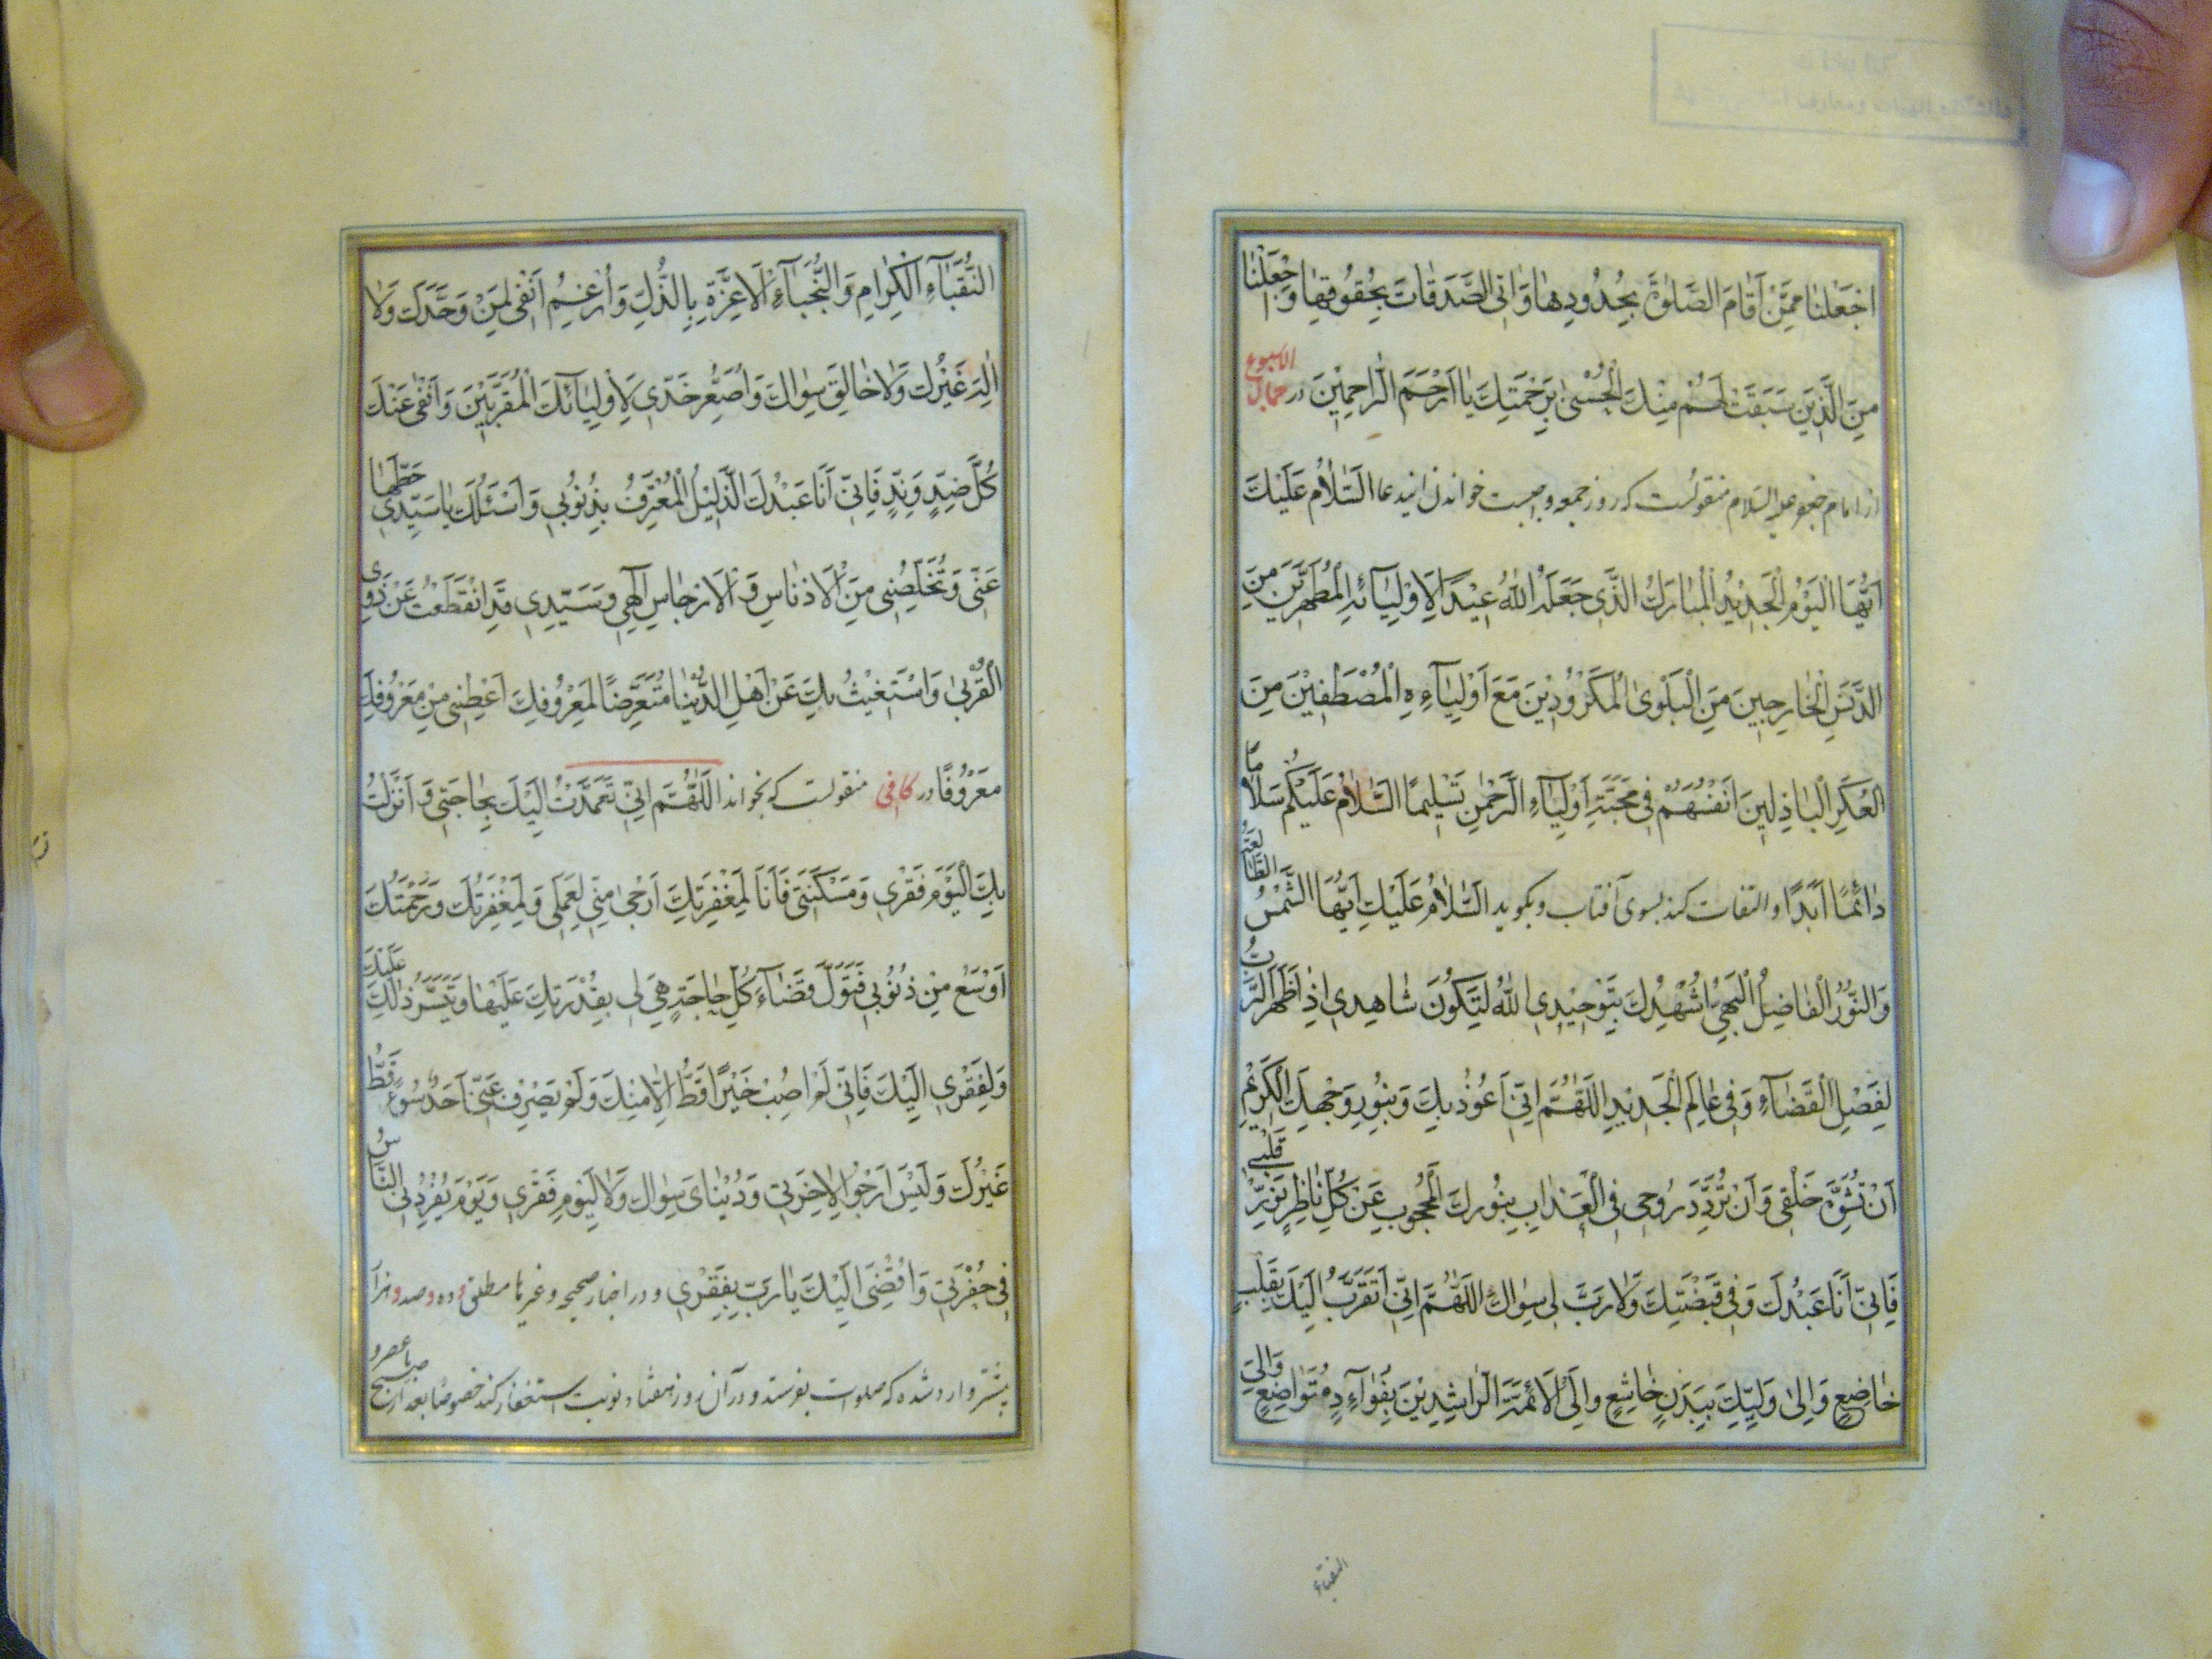 اجْعَلْنا مِمَّنْ أَقامَ الصَّلوةَ بِحُدُودِها وَاتَی الصَّدَقاتَ بِحُقُوقِها وَاجْعَلْنا
مِنَ الَّذينَ سَبَقَتْ لَهُمْ مِنْكَ الْحُسْنی بِرَحْمَتِكَ يا اَرْحَمَ الرّاحِمينَ در جمال الاسبوع
از امام جعفر علیه السلام منقولست که روز جمعه واجبست خواندن این دعا اَلسَّلامُ عَلَيْكَ
اَيُّهَا الْيَوْمُ الْجَديدُ الْمُبارَكُ الَّذی جَعَلَهُ اللهُ عيدًا لِاَوْلِيائِهِ الْمُطَهَّرينَ مِنَ
الدَّنَسِ الْخارِجينَ مِنَ الْبَلْوی الْمَكْرُورينَ مَعَ اَوْلِيآءِهِ الْمُصْطَفَيْنَ مِنَ
الْعَكَرِ الْباذِلينَ اَنْفُسَهُمْ فی مَحَبَّةِ اَوْلِيآءِ الرَّحْمنِ تَسْليمًا السَّلامُ عَلَيْكُمْ سَلامًا
دائِمًا اَبَدًا و التفات کند بسوی آفتاب و بگوید اَلسَّلامُ عَلَيْكِ اَيَّتُهَا الشَّمْسُ الطّالِعَةُ
وَالنُّورُ الْفاضِلُ الْبَهِیُّ اُشْهِدُكِ بِتَوْحيدِی اللهَ لِتَكُونَ شاهِدی اِذا ظَهَرَ الرَّبُّ
لِفَصْلِ الْقَضآءِ وَفِی عالَمِ الْجَديدِ اَللّهُمَّ اِنّی اَعُوذُ بِكَ وَبِنُورِ وَجْهِكَ الْكَريمِ
اَنْ تُشَوِّهَ خَلْقی وَاَنْ تُرَدِّدَ رُوحی فِی الْعَذابِ بِنُورِكَ الْمَحْجُوبِ عَنْ كُلِّ ناظِرٍ نَوِّرْ قَلْبی
فَاِنّی اَنَا عَبْدُكَ وَفی قَبْضَتِكَ وَلا رَبَّ لی سِواكَ اَللّهُمَّ اِنّی اَتَقَرَّبُ اِلَيْكَ بِقَلْبٍ
خاضِعٍ وَاِلی وَلِيِّكَ بِبَدَنٍ خاشِعٍ وَاِلَی الْاَئِمَّةِ الرّاشِدينَ بِفُؤادٍ مُتَواضِعٍ وَاِلَی
النقباء
النُّقَبآءِ الْكِرامِ وَالنُّجَبآءِ الْاَعِزَّةِ بِالذُّلِّ وَاُرْغِمُ اَنْفی لِمَنْ وَحَّدَكَ وَلا
اِلهَ غَيْرُكَ وَلا خالِقَ سِواكَ وَاُصَغِّرُ خَدّی لِاَوْلِيآئِكَ الْمُقَرَّبينَ وَاَنْفی عَنْكَ
كُلَّ ضِدٍّ وَنِدٍّ فَاِنّی اَنَا عَبْدُكَ الذَّليلُ الْمُعْتَرِفُ بِذُنُوبی وَاَسْئَلُكَ يا سَيِّدی حَطَّها
عَنّی وَتُخَلِّصُنی مِنَ الْاَدْناسِ وَالْاَرْجاسِ اِلهی وَسَيِّدی قَدِ انْقَطَعْتُ عَنْ ذَوِی
الْقُرْبی وَاسْتَغْيثُ بِكَ عَنْ اَهْلِ الدُّنْيا مُتَعَرِّضًا لِمَعْرُوفِكَ اَعْطِنی مِنْ مَعْرُوفِكَ
مَعْرُوفًا در کافی منقولست که بخواند اَللّهُمَّ اِنّی تَعَمَّدْتُ اِلَيْكَ بِحاجَتی وَ اَنْزَلْتُ
بِكَ الْيَوْمَ فَقْری وَمَسْكَنَتی فَاَنَا لِمَغْفِرَتِكَ اَرْجی مِنّی لِعَمَلی وَلَمَغْفِرَتُكَ وَرَحْمَتُكَ
اَوْسَعُ مِنْ ذُنُوبی فَتَوَلَّ قَضآءَ كُلِّ حاجَةٍ هِیَ لی بِقُدْرَتِكَ عَلَيْها وَتَيَسُّرِ ذلِكَ عَلَيْكَ
وَلِفَقْری اِلَيْكَ فَاِنّی لَمْ اُصِبْ خَيْرًا قَطُّ اِلّا مِنْكَ وَلَمْ يَصْرِفْ عَنّی اَحَدٌ سُوءً قَطُّ
غَيْرُكَ وَلَيْسَ اَرْجُو لِاخِرَتی وَدُنْيایَ سِواكَ وَلا لِيَوْمِ فَقْری وَيَوْمَ يُفْرِدُنِی النّاسُ
فی حُفْرَتی وَاُفْضی اِلَيْكَ يا رَبِّ بِفَقْری و در اخبار صحیحه و غیر ها مطلق و ده و صد و هزار
بیشتر وارد شده که صلوات بفرستد و در آن روز هفتاد نوبت استغفار کند خصوصا بعد از صبح یا عصر و